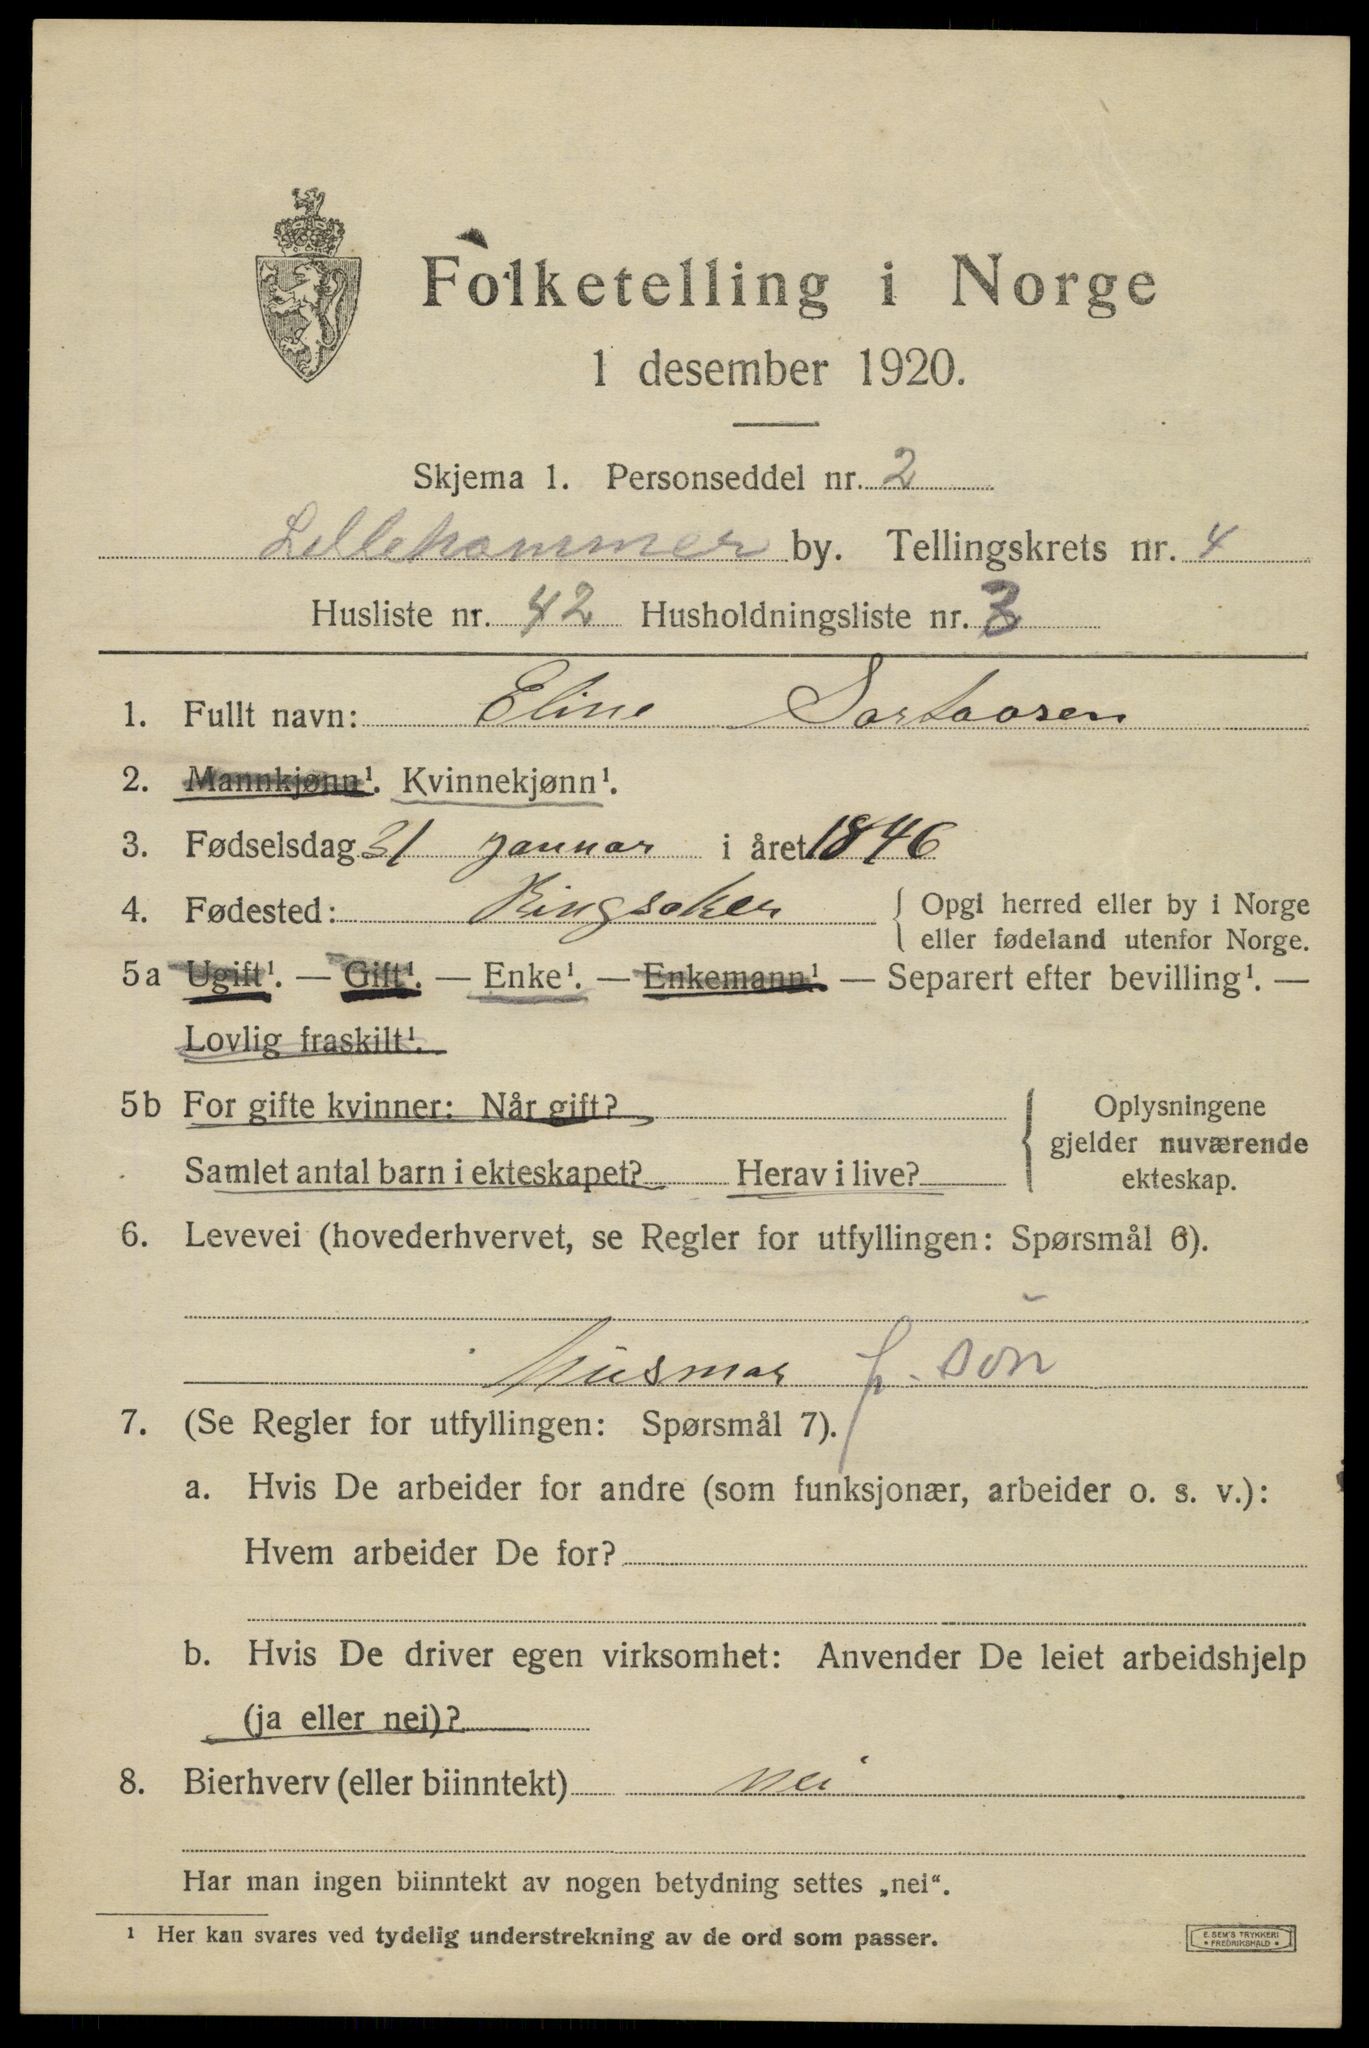 Folketelling i Norge
1 desember 1920.
Skjema 1. Personseddel nr. 2
Lillehammer by. Tellingskrets nr. 4
Husliste nr. 42 Husholdningsliste nr. 3
1. Fullt navn: Eline
2. Mannkjønn¹. Kvinnekjønn¹.
3. Fødselsdag 31 januar i året 1846
4. Fødested: Ringsaker { Opgi herred eller by i Norge
eller fødeland utenfor Norge.
5a Ugift¹. — Gift¹. — Enke¹. — Enkemann¹. — Separert efter bevilling¹. —
Lovlig fraskilt¹.
5b For gifte kvinner: Når gift?
Samlet antal barn i ekteskapet? Herav i live?
{ Oplysningene
gjelder nuværende
ekteskap.
6. Levevei (hovederhvervet, se Regler for utfyllingen: Spørsmål 6).
Husmor f. søn
7. (Se Regler for utfyllingen: Spørsmål 7).
a. Hvis De arbeider for andre (som funksjonær, arbeider o. s. v.):
Hvem arbeider De for?
b. Hvis De driver egen virksomhet: Anvender De leiet arbeidshjelp
(ja eller nei)?
8. Bierhverv (eller biinntekt) nei
Har man ingen biinntekt av nogen betydning settes „nei“.
¹ Her kan svares ved tydelig understrekning av de ord som passer.
E. SEM'S TRYKKERI
• FREDRIKSHALD •